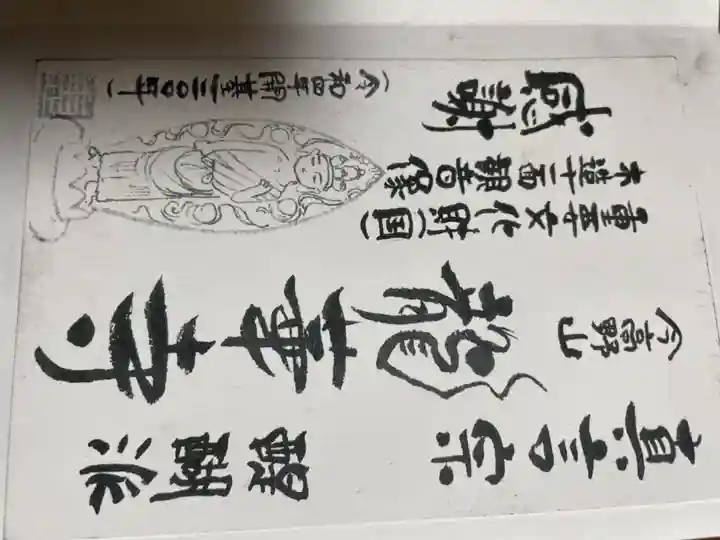 真言宗 醍醐派
今高野山 龍華寺
重要文化財(国)
木造十一面観音像
感謝
(令和四年開基一二〇〇年)